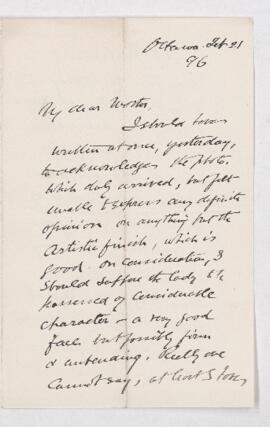 Ottawa. Feb 21
96
My dear
I should have
written at once, yesterday,
to acknowledge the photo.
which duly arrived, but felt
unable to express any definite
opinion on anything but the
Artistic finish, which is
good. On consideration, I
should suppose the lady to be
possessed of considerable
character – a very good
face but possibly firm
& unbending. Really one
cannot say, at least I